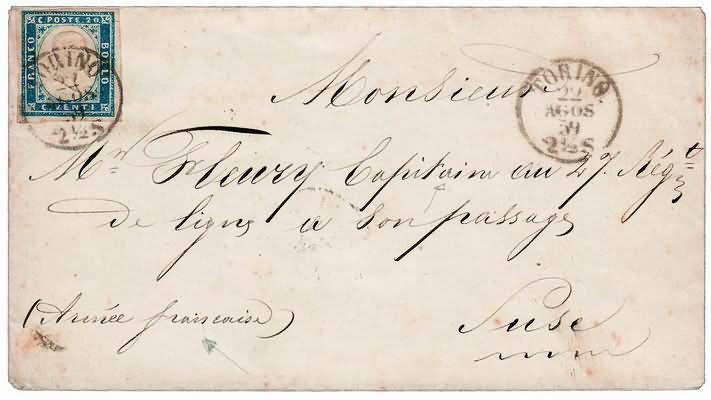 C. POSTE. 20
FRANCO
BOLLO
C. VENTI
TORINO
2½S
TORINO
22
AGOS
59
2½S
Monsieur
Mr Fleury Capitaine au 27. Régt
de ligne à son passage
(Armée française)
Suse